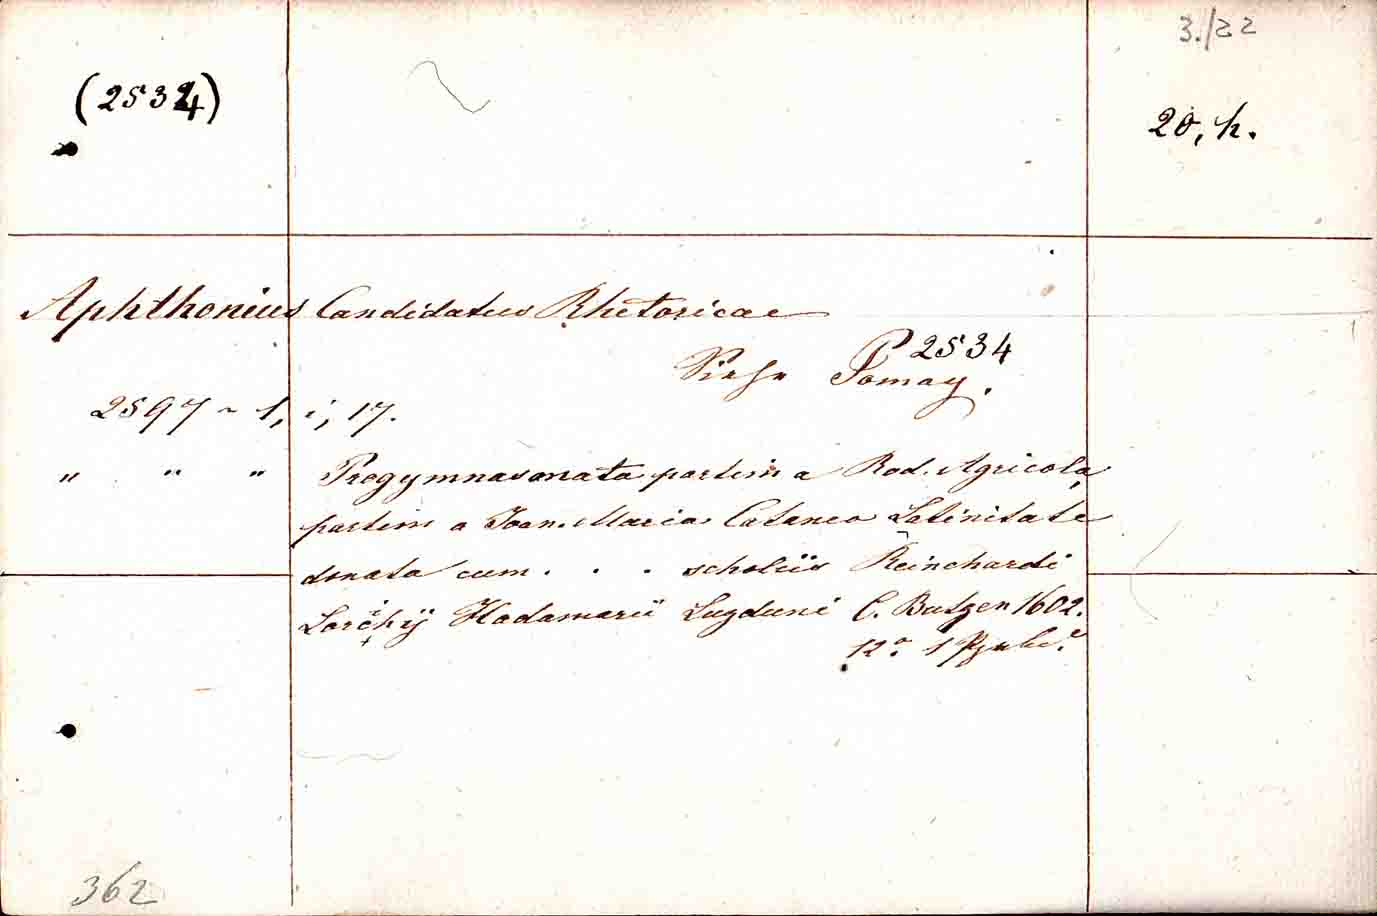 3./22
(2534)
20, h.
Aphthonius Candidatus Rhetoricae
2534
Siehe Pomay.
2597 ~ 1, i, 17.
" " " Progymnasmata partim a Rod. Agricola,
partim a Joan. Maria Cataneo Latinitate
donata cum . . . scholiis Reinchardi
Lorchij Hadamarii Lugduni C. Butgen 1602.
12°. 1
362